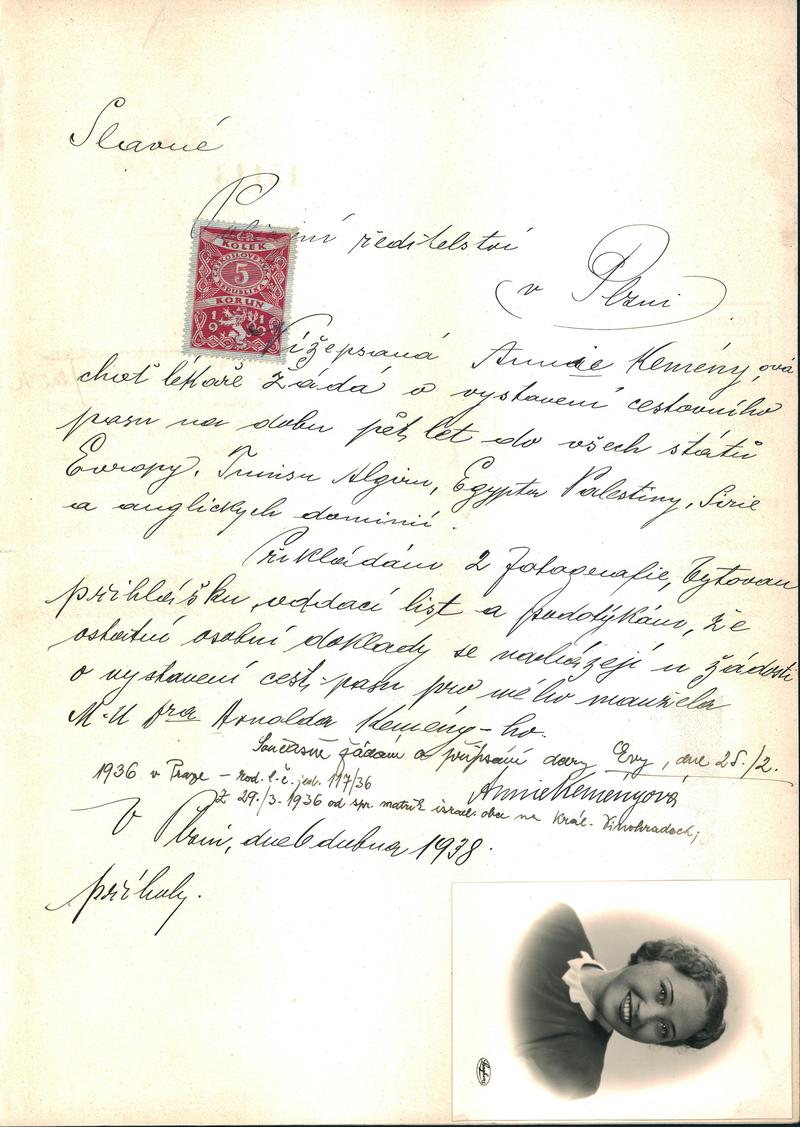 Slavné
Policejní ředitelství
v Plzni
KOLEK
ČESKOSLOVENSKÁ
5
REPUBLIKA
KORUN
1919
Nížepsaná Annie Kemény,ová
choť lékaře žádá o vystavení cestovního
pasu na dobu pět let do všech států
Evropy, Tunisu Algiru, Egypta Palestiny, Sirie
a anglických dominií.
Přikládám 2 fotografie, bytovou
přihlášku, oddací list a podotýkám, že
ostatní osobní doklady se nacházejí u žádosti
o vystavení cest. pasu pro mého manžela
M.U dra Arnolda Kemény-ho.
Současně žádám o připsání dcery Evy, dne 25./2.
1936 v Praze – rod. l. č. jed. 117/36
Annie Keményová
Z 29./3. 1936 od spr. matrik israel. obce na Král. Vinohradech,
V Plzni, dne 6 dubna 1938.
přílohy.